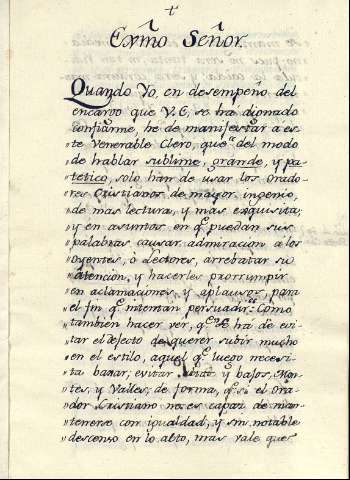 +
Exmo Señor.
Quando Yo, en desempeño del
encargo que V. E, se ha dignado
confiarme, he de manifestar a es-
te Venerable Clero, que del modo
de hablar sublime, grande, y pa-
tetico, solo han de usar los Orado-
res Cristianos de mayor ingenio,
de mas lectura, y mas exquisita;
y en asuntos en q.e puedan sus
palabras causar admiracion á los
Oyentes, ó Lectores, arrebatar su
atencion, y hacerles prorrumpir
en aclamaciones y aplausos, para
el fin q.e intentan persuadir: Como
tambien hacer ver, q.e se ha de evi-
tar el defecto de querer subir mucho
en el estilo, aquel q.e luego necesi-
ta baxar, evitar y baxos, Mon-
tes, y Valles; de forma, q.e si el Ora-
dor Cristiano no es capaz de man-
tenerse con igualdad, y sin notable
descenso en lo alto, mas vale que